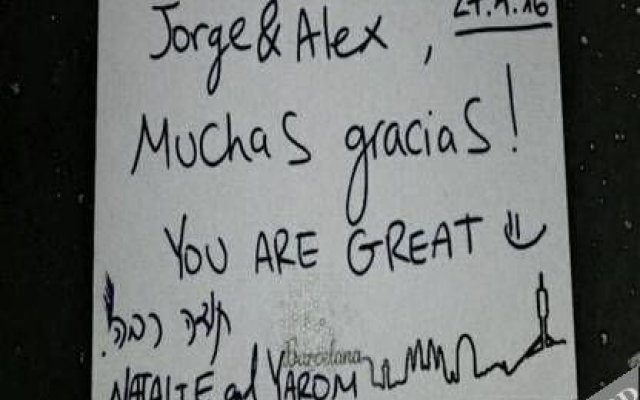 Jorge & Alex,
Muchas gracias!
YOU ARE GREAT
תודה רבה!
Barcelona
NATALIE and YAROM